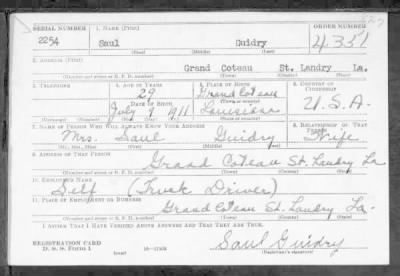 SERIAL NUMBER 1. NAME (Print) ORDER NUMBER
2254 Saul Guidry 4351
(First) (Middle) (Last)
2. ADDRESS (Print)
Grand Coteau St. Landry La.
(Number and street or R. F. D. number) (Town) (County) (State)
3. TELEPHONE 4. AGE IN YEARS 5. PLACE OF BIRTH 6. COUNTRY OF CITIZENSHIP
29 Grand Coteau
DATE OF BIRTH (Town or county)
July 1911 Louisiana U.S.A.
(Exchange) (Number) (Mo.) (Day) (Yr.) (State or country)
7. NAME OF PERSON WHO WILL ALWAYS KNOW YOUR ADDRESS 8. RELATIONSHIP OF THAT PERSON
Mrs. Saul Guidry Wife
(Mr., Mrs., Miss) (First) (Middle) (Last)
9. ADDRESS OF THAT PERSON
Grand Coteau St. Landry La
(Number and street or R. F. D. number) (Town) (County) (State)
10. EMPLOYER'S NAME
Self (Truck Driver)
11. PLACE OF EMPLOYMENT OR BUSINESS
Grand Coteau St. Landry La.
(Number and street or R. F. D. number) (Town) (County) (State)
I AFFIRM THAT I HAVE VERIFIED ABOVE ANSWERS AND THAT THEY ARE TRUE.
REGISTRATION CARD
D. S. S. Form 1 (over) Saul Guidry
(Registrant's signature)